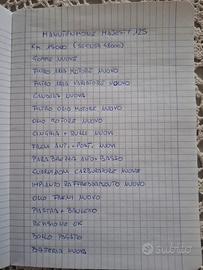 MANUTENZIONE MAJESTY 125
KM 19000 (SEGNA 48000)
GOMME NUOVE
FILTRO ARIA MOTORE NUOVO
FILTRO ARIA VARIATORE NUOVO
CANDELA NUOVA
FILTRO OLIO MOTORE NUOVO
OLIO MOTORE NUOVO
CINGHIA + RULLI NUOVI
FRENI ANT. + POST. NUOVI
PARABREZZA ALTO + BASSO
CARBURATORE NUOVA
IMPIANTO RAFFREDDAMENTO NUOVO
OLIO FRENI NUOVO
PIASTRA + BAULETTO
REVISIONE OK
BOLLO PAGATO
BATTERIA NUOVA
Subito